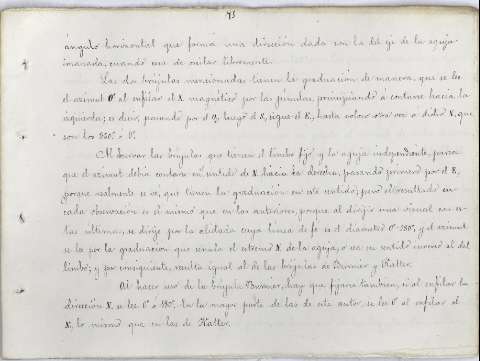 71
ángulo horizontal que forma una dirección dada con la del eje de la aguja
imanada, cuando esa de oscilar libremente.
Las dos brújulas mencionadas tienen la graduación de manera, que se lee
el azimut 0° al enfilar el N. magnético por las pínulas, principiando á contarse hacia la
izquierda; es decir, pasando por el O, luego el S, sigue el E, hasta volver otra vez a dicho N, que
son los 360° o 0°.
Al observar las brújulas que tienen el limbo fijo y la aguja independiente, parece
que el azimut debía contarse en sentido de N. hacia la derecha, pasando primero por el E,
porque realmente se ve, que tienen la graduación en este sentido; pero el resultado en
cada observación es el mismo que en las anteriores, porque al dirigir una visual con es-
tas últimas, se dirige por la alidada cuya línea de fe es el diámetro 0°-180°, y el azimut
se lee por la graduación que señala el extremo N. de la aguja, o sea en sentido inverso al del
limbo; y por consiguiente, resulta igual al de las brújulas de Burnier y Katter.
Al hacer uso de la brújula Burnier, hay que fijarse también, si al enfilar la
dirección N. se lee 0° o 180°. En la mayor parte de las de este autor, se lee 0° al enfilar el
N., lo mismo que en las de Katter.